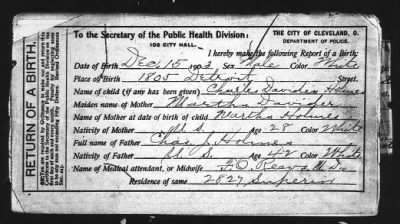 RETURN OF A BIRTH.
To the Secretary of the Public Health Division:
102 CITY HALL.
THE CITY OF CLEVELAND, O.
DEPARTMENT OF POLICE.
I hereby make the following Report of a Birth:
Date of Birth Dec. 15 1903 Sex Male Color White
Place of Birth 1805 Detroit Street.
Name of child (if any has been given) Charles Davider Holmes
Maiden name of Mother Martha Davider
Name of Mother at date of birth of child Martha Holmes
Nativity of Mother U. S. Age 28 Color White
Full name of Father Chas. J. Holmes
Nativity of Father U. S. Age 42 Color White
Name of Medical attendant, or Midwife M. D.
Residence of same 2827 Superior